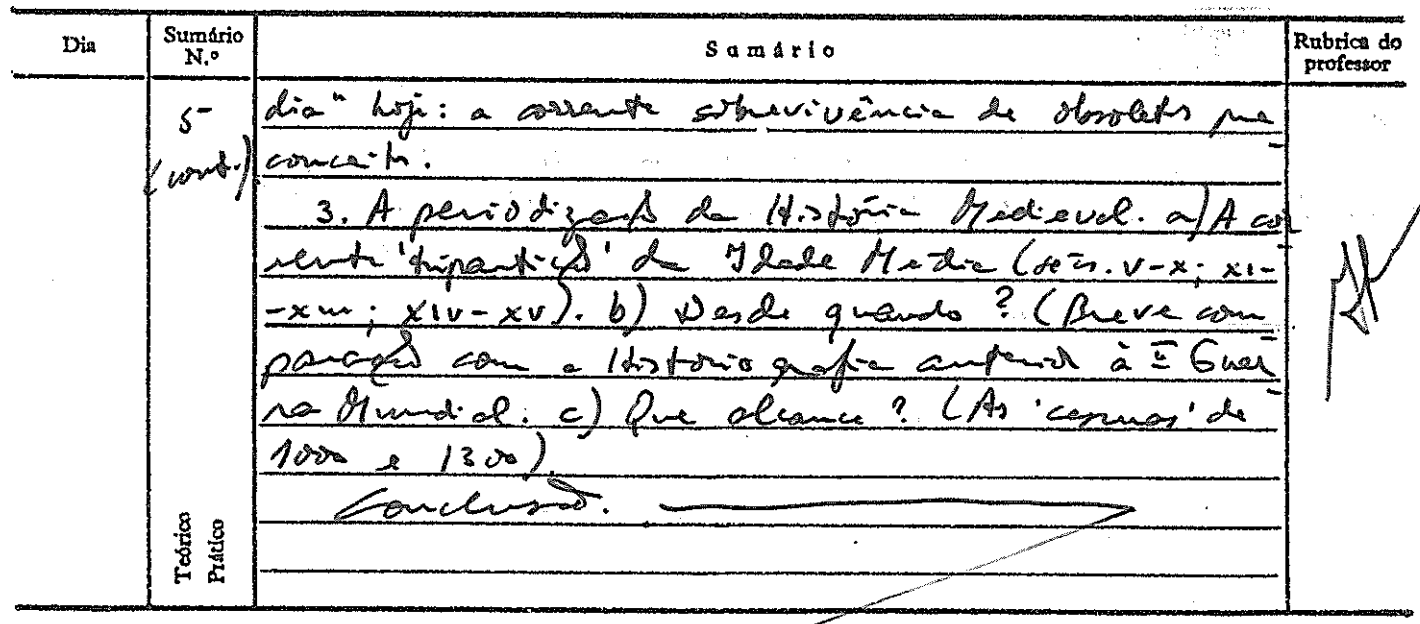 Dia Sumário N.º Sumário Rubrica do professor
5 dia" hoje: a corrente sobrevivência de obsoletos pre
(cont.) conceitos.
3. A periodização da História Medieval. a) A cor
rente 'tripartição' da Idade Média (sécs. V-X; XI-
-XIII; XIV-XV). b) Desde quando? (Breve com
paração com a Historiografia anterior à IIª Guer
ra Mundial. c) Que alcance? (As 'cesuras' de
1000 e 1300).
Conclusão.
Teórico
Prático